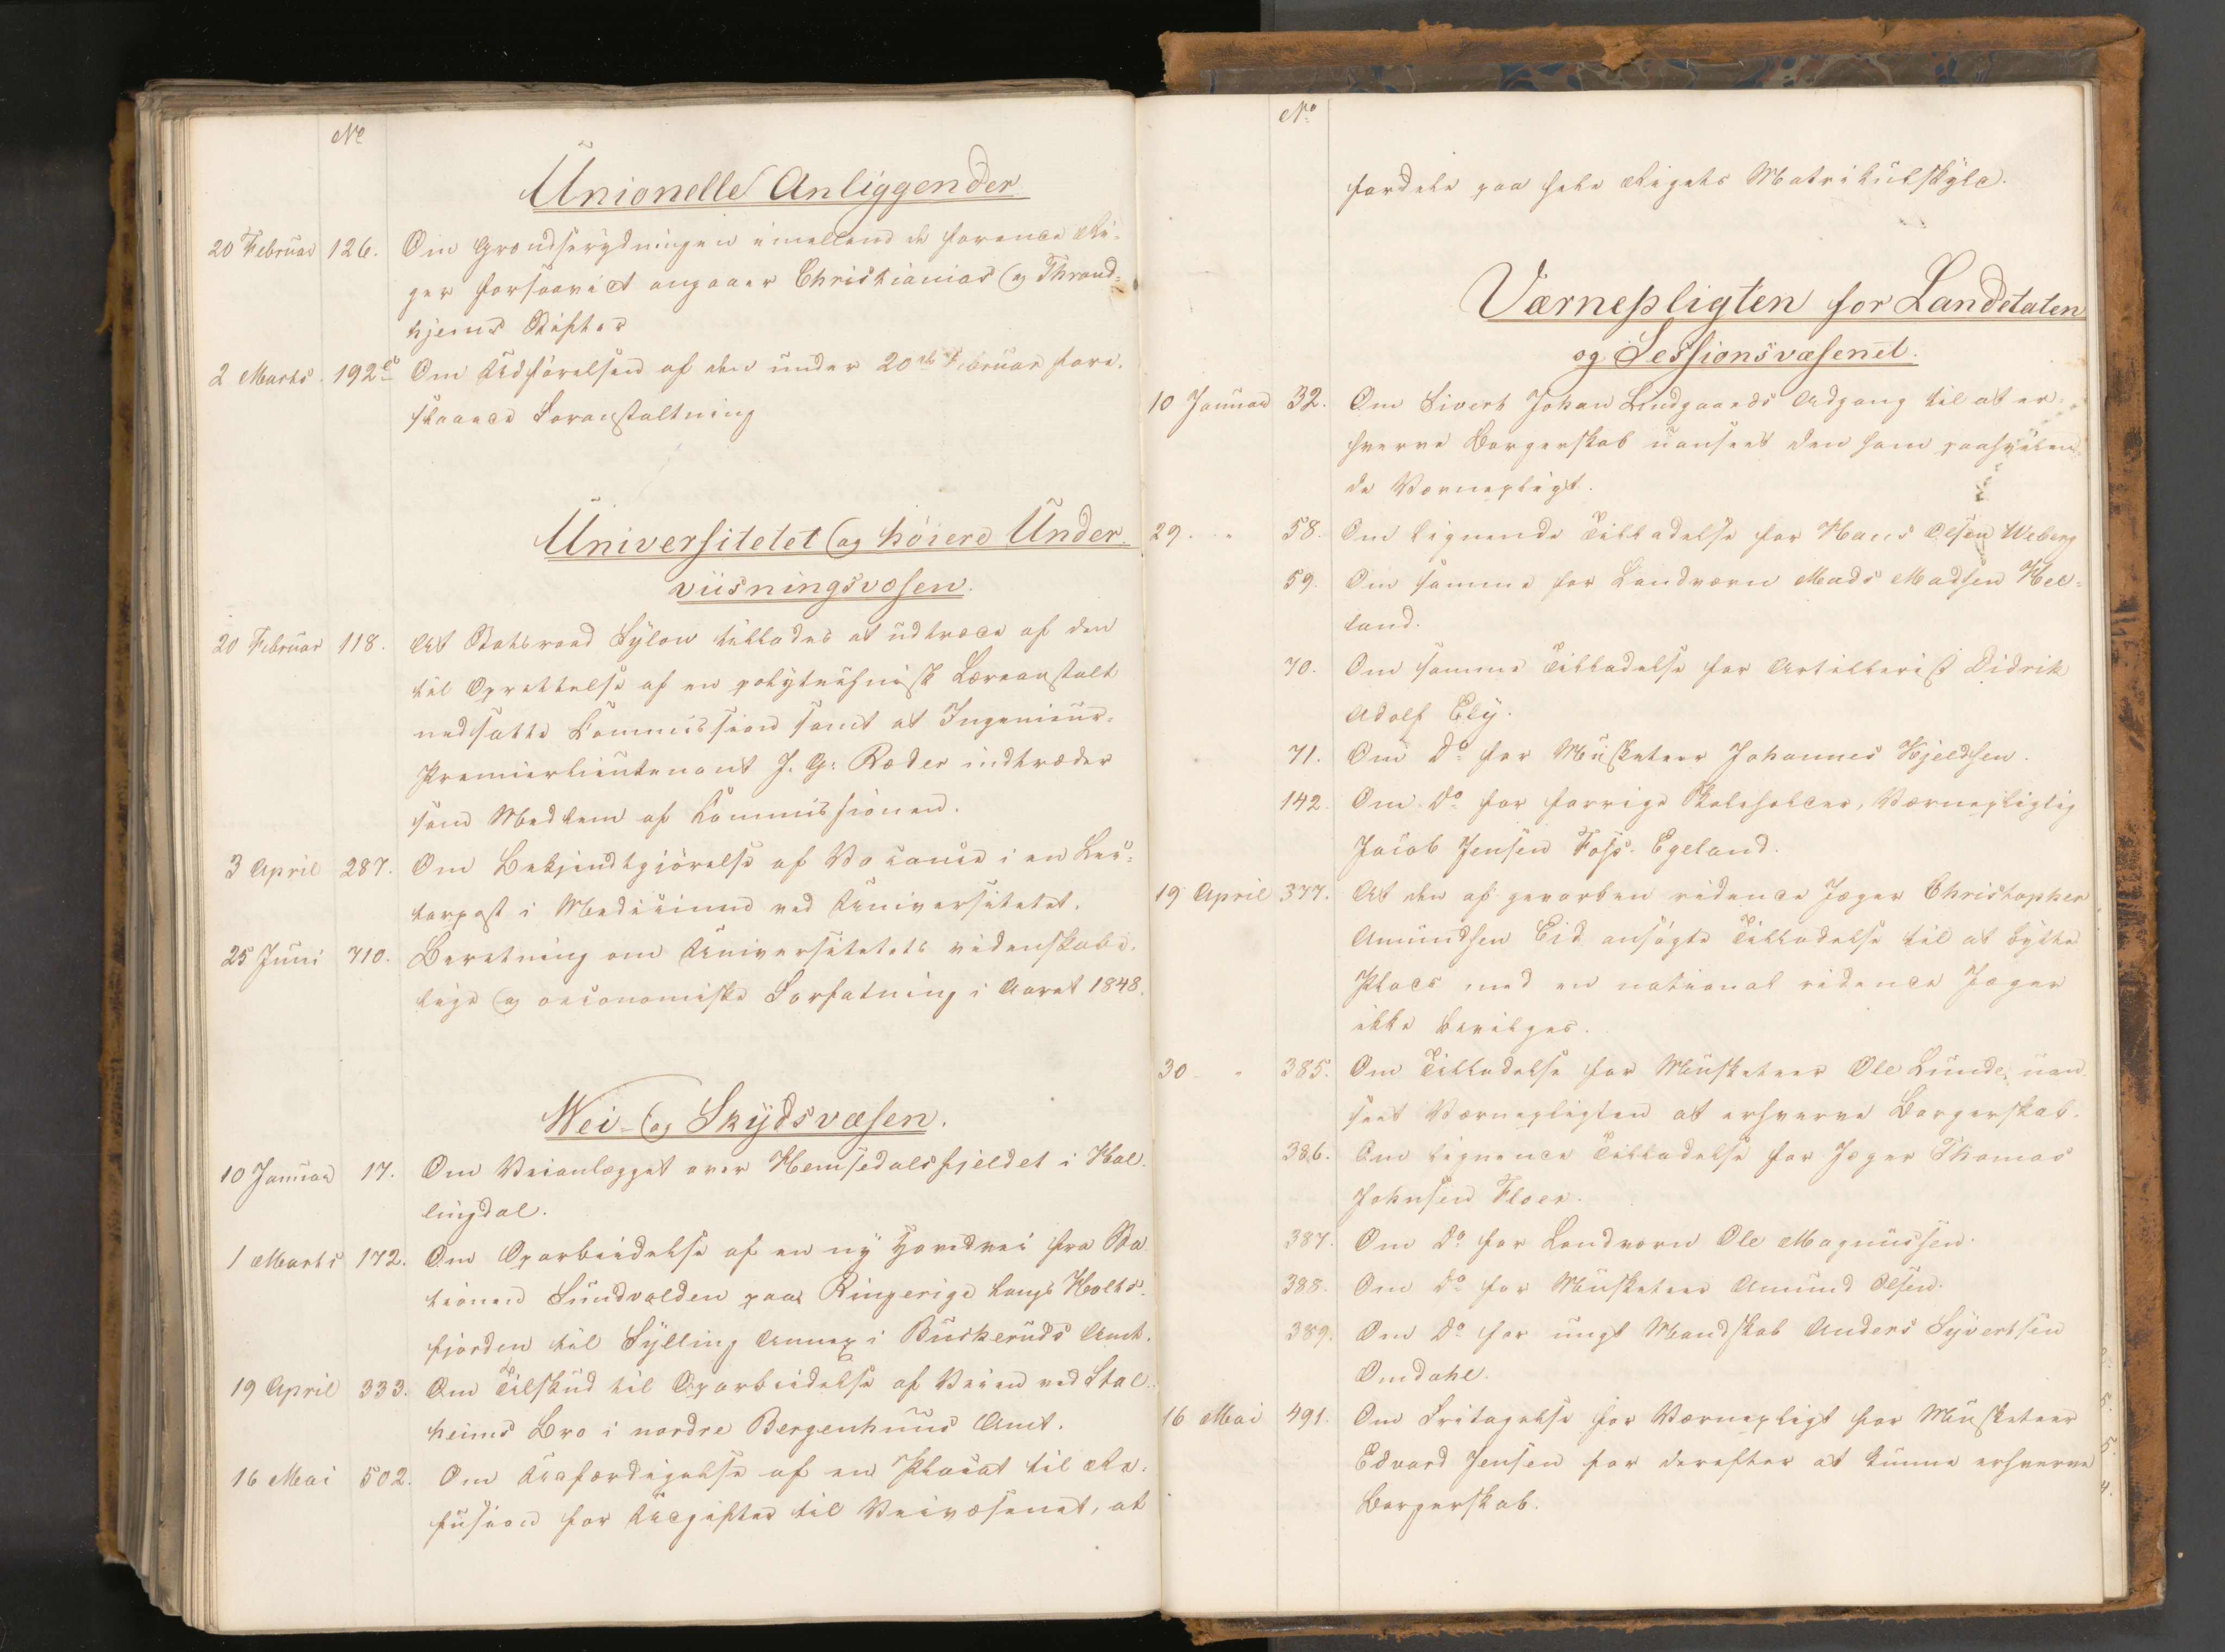 No
Unionelle Anliggender
20 Februar 126. Om Grændserydningen imellem de forenede Ri-
ger forsaavidt angaaer Christianias og Thrond-
hjems Stifter
2 Marts. 192 b Om Udførelsen af den under 20de Februar fore-
staaende Foranstaltning
Universitetet og høiere Under-
viisningsvæsen.
20 Februar 118. At Statsraad Sylow tillades at udtræde af den
til Oprettelse af en polytechnisk Læreanstalt
nedsatte Kommission samt at Ingenieur-
Premierlieutenant J. G. Ræder indtræder
som Medlem af Kommissionen.
3 April 287. Om Bekjendtgjørelse af Vacance i en Lec-
torpost i Medicinen ved Universitetet.
25 Juni 710. Beretning om Universitetets videnskabe-
lige og oeconomiske Forfatning i Aaret 1848.
Vei- og Skydsvæsen.
10 Januar 17. Om Veianlægget over Hemsedalsfjeldet i Hal-
lingdal.
1 Marts 172. Om Oparbeidelse af en ny Hovedvei fra Sta-
tionen Sundvolden paa Ringerige langs Holts-
fjorden til Sylling Annex i Buskeruds Amt.
19 April 333. Om Tilskud til Oparbeidelse af Veien ved Stal-
heims Bro i nordre Bergenhuus Amt.
16 Mai 502. Om Udfærdigelse af en Placat til Re-
fusion for Udgifter til Veivæsenet, at
No
fordele paa hele Rigets Matrikulskyld.
Værnepligten for Landetaten
og Sessionsvæsenet.
10 Januar 32. Om Sivert Johan Lindgaards Adgang til at er-
hverve Borgerskab uanseet den ham paahvilen-
de Værnepligt.
29. " 58. Om lignende Tilladelse for Hans Olsen Weberg
59. Om samme for Landværn Mads Madsen Hel-
land.
70. Om samme Tilladelse for Artillerist Didrik
Adolf Ely.
71. Om Do for Musketeer Johannes Kjeldsen.
142. Om Do for forrige Skoleholder, Værnepligtig
Jacob Jensen Foss-Egeland.
19 April 377. At den af gevorben ridende Jæger Christopher
Amundsen Eid ansøgte Tilladelse til at bytte
Plads med en national ridende Jæger
ikke bevilges.
30 " 385. Om Tilladelse for Musketeer Ole Lunde uan-
seet Værnepligten at erhverve Borgerskab.
386. Om lignende Tilladelse for Jæger Thomas
Johnsen Floer.
387. Om Do for Landværn Ole Magnussen.
388. Om Do for Musketeer Amund Olsen.
389. Om Do for ungt Mandskab Anders Syvertsen
Omdahl.
16 Mai 491. Om Fritagelse for Værnepligt for Musketeer
Edvard Jensen for derefter at kunne erhverve
Borgerskab.